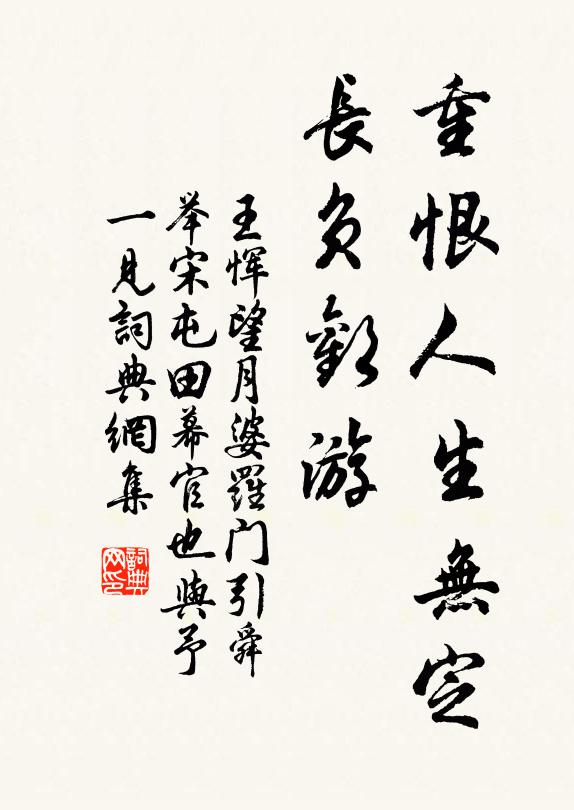 重恨人生無定
長負歡游
王恽望月婆羅门引舜
举宋屯田幕官也與予
一見詞典網集
詞典网印